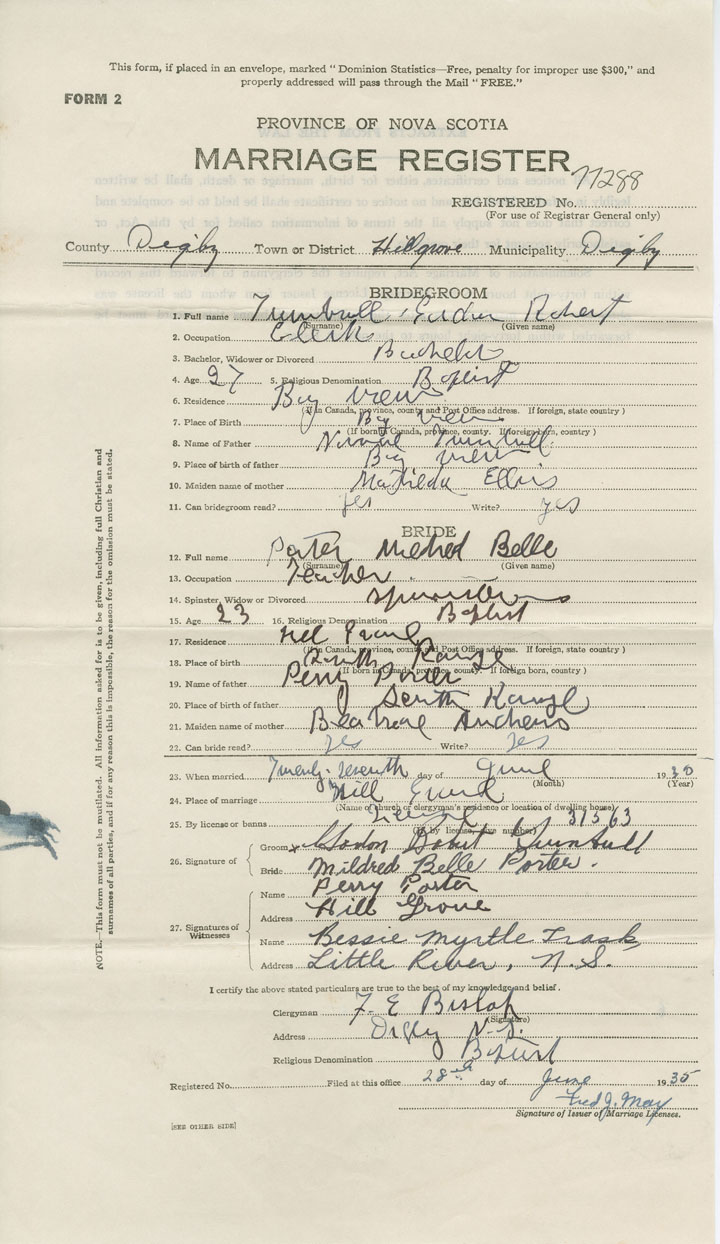 This form, if placed in an envelope, marked " Dominion Statistics—Free, penalty for improper use $300," and
properly addressed will pass through the Mail " FREE."
FORM 2
PROVINCE OF NOVA SCOTIA
MARRIAGE REGISTER
REGISTERED No. 77288
(For use of Registrar General only)
County Digby Town or District Hillgrove Municipality Digby
BRIDEGROOM
1. Full name Turnbull Robert
(Surname) (Given name)
2. Occupation Clerk
3. Bachelor, Widower or Divorced Bachelor
4. Age 27 5. Religious Denomination Baptist
6. Residence Bay View
(If in Canada, province, county and Post Office address. If foreign, state country )
7. Place of Birth Bay View
(If born in Canada, province, county. If foreign born, country )
8. Name of Father Turnbull
9. Place of birth of father Bay View
10. Maiden name of mother Mathilda Ellis
11. Can bridegroom read? yes Write? yes
BRIDE
12. Full name Porter Mildred Belle
(Surname) (Given name)
13. Occupation Teacher
14. Spinster, Widow or Divorced Spinster
15. Age 23 16. Religious Denomination Baptist
17. Residence Hill Grove
(If in Canada, province, county and Post Office address. If foreign, state country )
18. Place of birth South Range
(If born in Canada, province, county. If foreign born, country )
19. Name of father Perry Porter
20. Place of birth of father South Range
21. Maiden name of mother Andrews
22. Can bride read? yes Write? yes
23. When married Twenty-seventh day of June 1935
(Month) (Year)
24. Place of marriage Hill Grove
(Name of church or clergyman's residence or location of dwelling house)
25. By license or banns License 31563
(If by license, give number)
26. Signature of
Groom Turnbull
Bride Mildred Belle Porter.
27. Signatures of Witnesses
Name Perry Porter
Address Hill Grove
Name Bessie Myrtle Trask
Address Little River, N.S.
I certify the above stated particulars are true to the best of my knowledge and belief.
Clergyman F. E. Bishop
(Signature)
Address Digby N.S.
Religious Denomination Baptist
Registered No. Filed at this office 28th day of June 1935
Fred J. May
Signature of Issuer of Marriage Licenses.
[SEE OTHER SIDE]
NOTE.—This form must not be mutilated. All information asked for is to be given, including full Christian and
surnames of all parties, and if for any reason this is impossible, the reason for the omission must be stated.